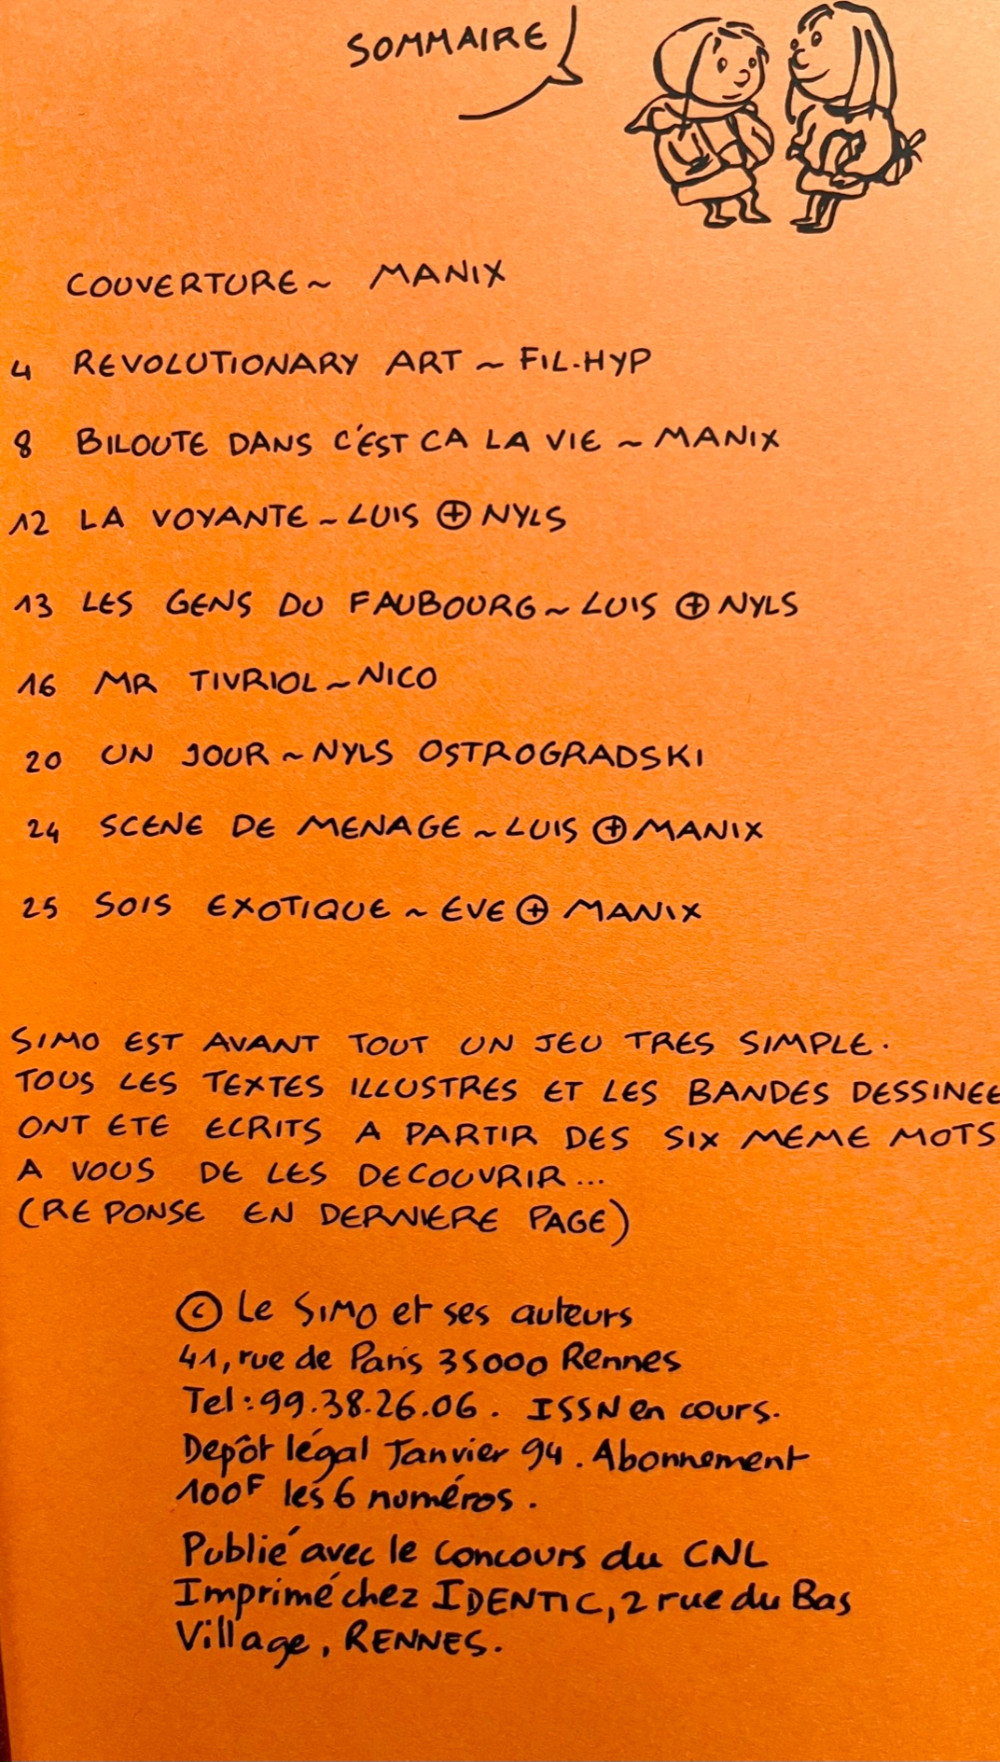 SOMMAIRE
COUVERTURE ~ MANIX
4 REVOLUTIONARY ART ~ FIL.HYP
8 BILOUTE DANS C'EST CA LA VIE ~ MANIX
12 LA VOYANTE ~ LUIS ⊕ NYLS
13 LES GENS DU FAUBOURG ~ LUIS ⊕ NYLS
16 MR TIVRIOL ~ NICO
20 UN JOUR ~ NYLS OSTROGRADSKI
24 SCENE DE MENAGE ~ LUIS ⊕ MANIX
25 SOIS EXOTIQUE ~ EVE ⊕ MANIX
SIMO EST AVANT TOUT UN JEU TRES SIMPLE.
TOUS LES TEXTES ILLUSTRES ET LES BANDES DESSINEE
ONT ETE ECRITS A PARTIR DES SIX MEME MOTS
A VOUS DE LES DECOUVRIR...
(REPONSE EN DERNIERE PAGE)
© Le SIMO et ses auteurs
41, rue de Paris 35000 Rennes
Tel : 99.38.26.06. ISSN en cours.
Depôt légal Janvier 94. Abonnement
100F les 6 numéros.
Publié avec le concours du CNL
Imprimé chez IDENTIC, 2 rue du Bas
Village, RENNES.